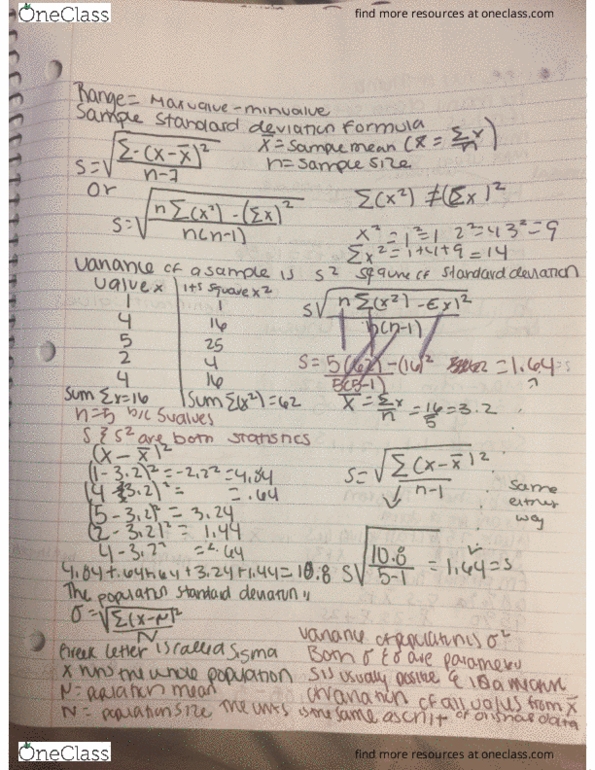 OneClass
find more resources at oneclass.com
Range = Maxvalue - minvalue
Sample standard deviation formula
s = √ Σ(x - x̄)² / n-1
x̄ = sample mean (x̄ = Σx / n)
n = sample size
or
s = √ n Σ(x²) - (Σx)² / n(n-1)
Σ(x²) ≠ (Σx)²
x² = 1² = 1 2² = 4 3² = 9
Σx² = 1+4+9 = 14
variance of a sample is s² square of standard deviation
value x | its square x²
1 | 1
4 | 16
5 | 25
2 | 4
4 | 16
Sum Σx = 16 | Sum Σ(x²) = 62
s √ n Σ(x²) - (Σx)² / n(n-1)
s = 5(62) - (16)² / 5(5-1) = 1.64 = s
n = 5 b/c 5 values
x̄ = Σx / n = 16 / 5 = 3.2
s & s² are both statistics
(x - x̄)²
(1 - 3.2)² = -2.2² = 4.84
(4 - 3.2)² = = .64
(5 - 3.2)² = 3.24
(2 - 3.2)² = 1.44
4 - 3.2² = .64
s = √ Σ(x - x̄)² / n-1
same
either
way
4.84 + .64 + .64 + 3.24 + 1.44 = 10.8
s √ 10.8 / 5-1 = 1.64 = s
The population standard deviation
σ = √ Σ(x-μ)² / N
Greek letter is called Sigma
X the whole population
μ = population mean
N = population size
variance of population is σ²
Both σ & σ are parameters
S is usually positive & is a
of variation of all values from x̄
The units same as of original data
OneClass
find more resources at oneclass.com